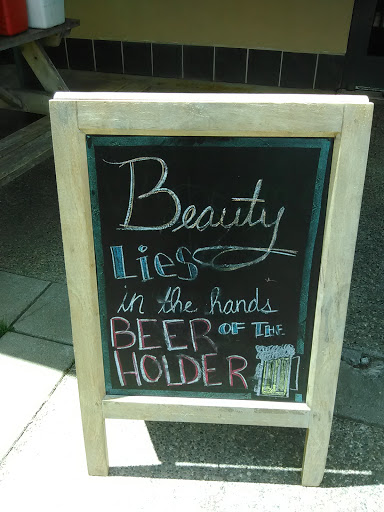 Beauty
Lies
in the hands
BEER OF THE
HOLDER